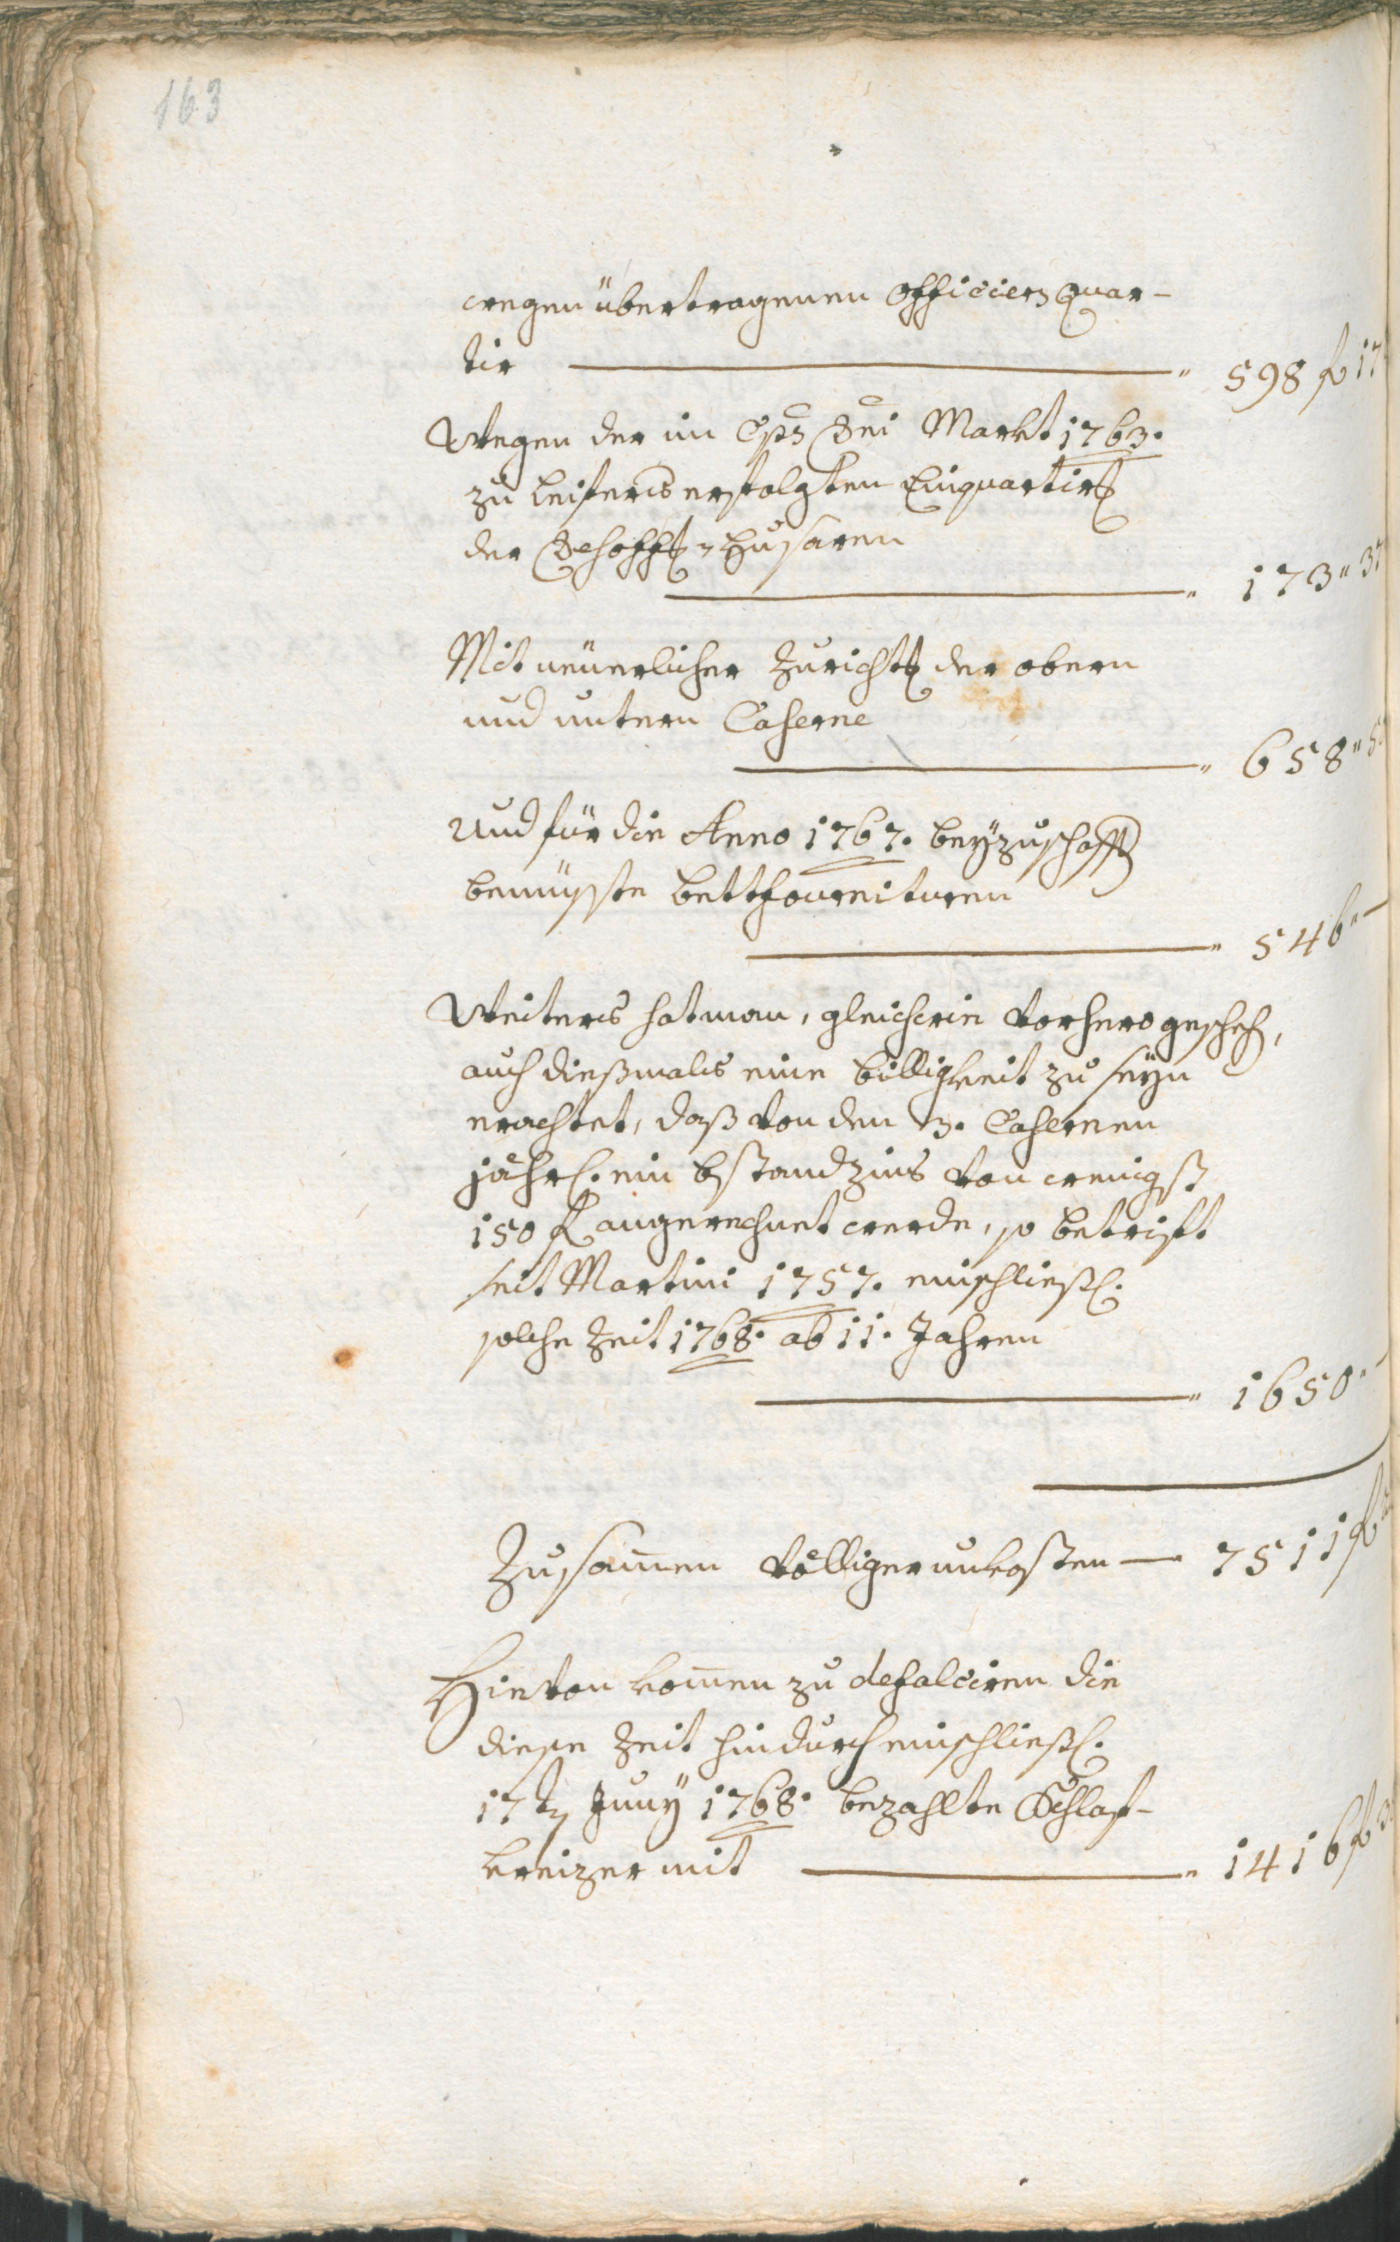 163
wegen übertragenen Officiers Quar-
tir — 598 f 17
Wegen der im Markt 1763.
zu Leifers erfolgten Einquartirg
der Husaren
173 " 37
Mit neuerlicher Zurichtg der obern
und untern Caserne
658 "
und für die Anno 1767. beyzuschaffen
bemüste Bettfournituren
546 " —
Weiters hat man, gleichwie vorhero geschehen,
auch diessmals eine billigkeit zu seyn
erachtet, dass von den 3. Casernen
jährl. ein bstandzins von wenigst
150 f angerechnet werde, so betrift
seit Martini 1757. einschliessl.
solche Zeit 1768. ab 11. Jahren
1650 " —
Zusamen völliger unkosten — 7511 f
Hievon komen zu defalciren die
diese Zeit hindurch einschliessl.
17ten Juny 1768. bezahlte Schlaf-
kreizer mit — 1416 f